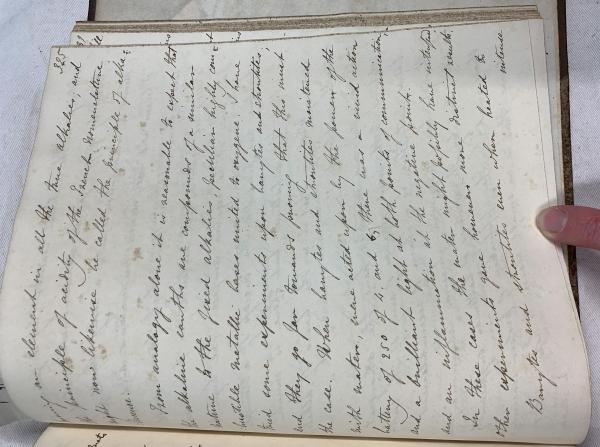 325
an element in all the true alkalies, and
the principle of acidity of the French nomenclature
now likewise be called the principle of alka=
=lescence.
From analogy alone it is reasonable to expect that
the alkaline earths are compounds of a similar
nature to the fixed alkalies, peculiar highly comb
=bustible metallic bases united to oxygene. I have
tried some experiments upon barytes and strontites,
and they go far towards proving that this must
be the case. When barytes and strontites moistened
with water, were acted upon by the power of the
battery of 250 of 4 and 6, there was a vivid action
and a brilliant light at both points of communication,
and an inflammation at the negative point.
In these cases the water might possibly have interfered,
other experiments gave however more distinct results.
Barytes and strontites even when heated to intense